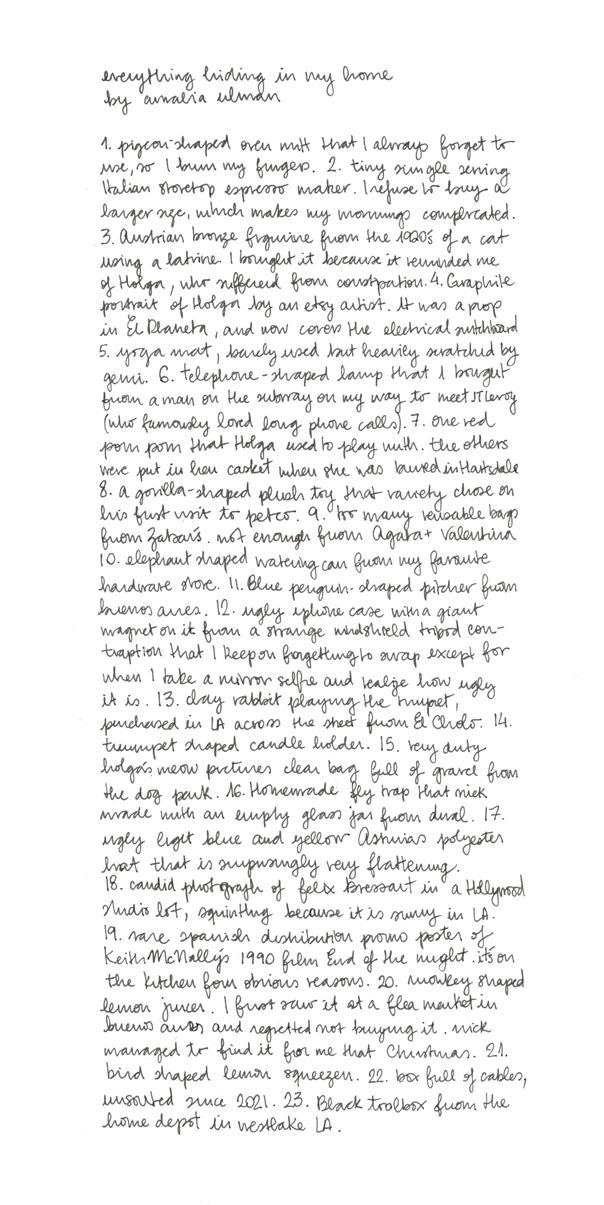 everything hiding in my home
by amalia ulman
1. pigeon-shaped oven mitt that I always forget to
use, so I burn my fingers. 2. tiny single serving
Italian stovetop espresso maker. I refuse to buy a
larger size, which makes my mornings complicated.
3. Austrian bronze figurine from the 1920s of a cat
using a latrine. I bought it because it reminded me
of Holga, who suffered from constipation. 4. Graphite
portrait of Holga by an etsy artist. It was a prop
in El Planeta, and now covers the electrical switchboard
5. yoga mat, barely used but heavily scratched by
gemi. 6. telephone-shaped lamp that I bought
from a man on the subway on my way to meet JT Leroy
(who famously loved long phone calls). 7. one red
pom pom that Holga used to play with. the others
were put in her casket when she was buried in Hartsdale
8. a gorilla-shaped plush toy that variety chose on
his first visit to petco. 9. too many reusable bags
from Zabar's. not enough from Agata + Valentina
10. elephant shaped watering can from my favourite
hardware store. 11. Blue penguin-shaped pitcher from
buenos aires. 12. ugly iphone case with a giant
magnet on it from a strange windshield tripod con-
traption that I keep on forgetting to swap except for
when I take a mirror selfie and realize how ugly
it is. 13. clay rabbit playing the trumpet,
purchased in LA across the street from El Cholo. 14.
trumpet shaped candle holder. 15. very dirty
holga's meow pictures clear bag full of gravel from
the dog park. 16. Homemade fly trap that nick
made with an empty glass jar from dual. 17.
ugly light blue and yellow Asturias polyester
hat that is surprisingly very flattening.
18. candid photograph of felix Bressart in a Hollywood
studio lot, squinting because it is sunny in LA.
19. rare spanish distribution promo poster of
Keith McNally's 1990 film End of the night. it's on
the kitchen for obvious reasons. 20. monkey shaped
lemon juicer. I first saw it at a flea market in
buenos aires and regretted not buying it. nick
managed to find it for me that Christmas. 21.
bird shaped lemon squeezer. 22. box full of cables,
unsorted since 2021. 23. Black toolbox from the
home depot in westlake LA.